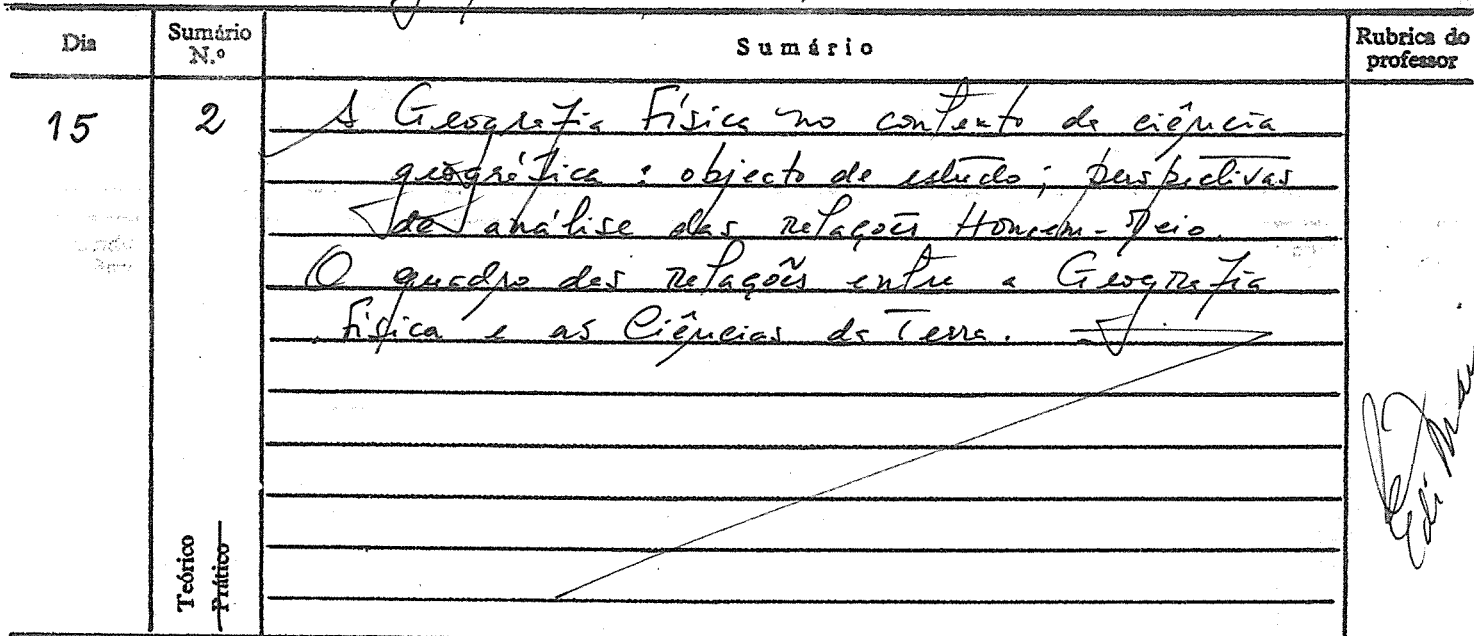 Dia
Sumário N.º
Sumário
Rubrica do professor
15
2
A Geografia Física no contexto da ciência
geográfica : objecto de estudo ; perspectivas
de análise das relações Homem-Meio.
O quadro das relações entre a Geografia
Física e as Ciências da Terra.
Teórico
Prático